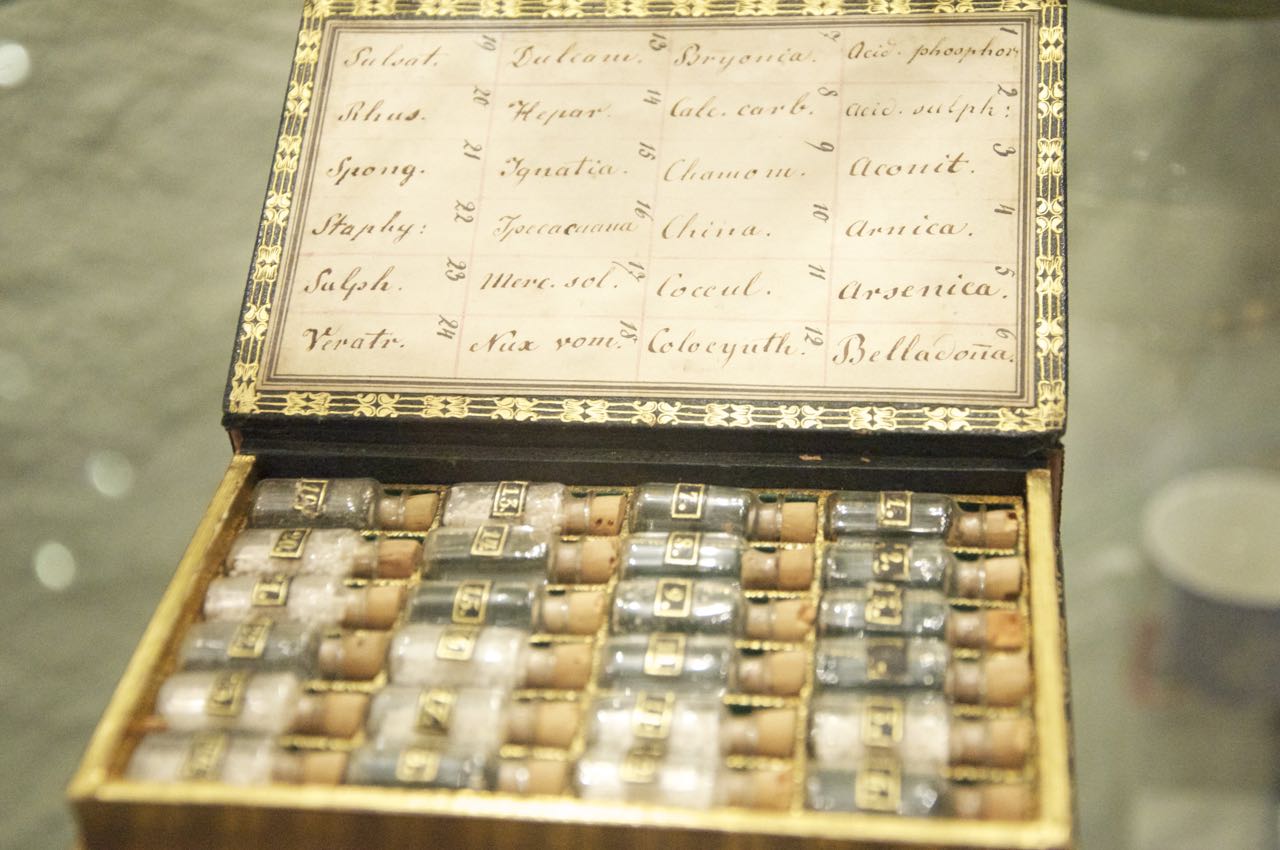 Pulsat. 19 Dulcam. 13 Bryonia. 7 Acid. phosphor 1
Rhus. 20 Hepar. 14 Calc. carb. 8 Acid. sulph: 2
Spong. 21 Ignatia. 15 Chamom. 9 Aconit. 3
Staphy: 22 Ipecacuana 16 China. 10 Arnica. 4
Sulph. 23 Merc. sol. 17 Coccul. 11 Arsenica. 5
Veratr. 24 Nux vom. 18 Colocynth. 12 Belladoña. 6
19. 13. 7. 1.
20. 14. 8. 2.
9.